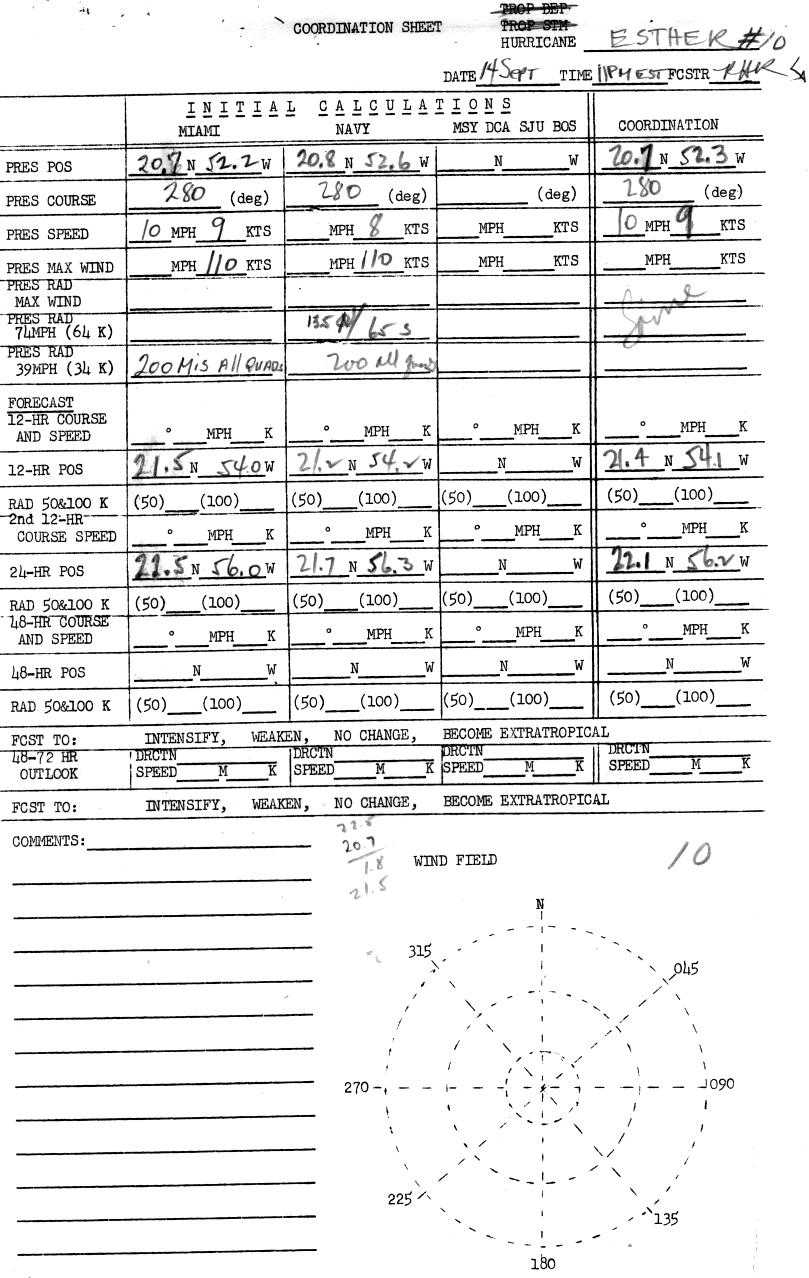 PROP DEP
COORDINATION SHEET PROP STM
HURRICANE ESTHER #10
DATE 14 Sept TIME 11PM EST FCSTR RHR
INITIAL CALCULATIONS
MIAMI NAVY MSY DCA SJU BOS COORDINATION
PRES POS 20.7 N 52.2 W 20.8 N 52.6 W N W 20.7 N 52.3 W
PRES COURSE 280 (deg) 280 (deg) (deg) 280 (deg)
PRES SPEED 10 MPH 9 KTS MPH 8 KTS MPH KTS 10 MPH 9 KTS
PRES MAX WIND MPH 110 KTS MPH 110 KTS MPH KTS MPH KTS
PRES RAD
MAX WIND
PRES RAD
74MPH (64 K) 135 N/ 65 S Same
PRES RAD
39MPH (34 K) 200 Mis All QUADS 200 all quad
FORECAST
12-HR COURSE
AND SPEED ° MPH K ° MPH K ° MPH K ° MPH K
12-HR POS 21.5 N 54.0 W 21.2 N 54.2 W N W 21.4 N 54.1 W
RAD 50&100 K (50) (100) (50) (100) (50) (100) (50) (100)
2nd 12-HR
COURSE SPEED ° MPH K ° MPH K ° MPH K ° MPH K
24-HR POS 22.5 N 56.0 W 21.7 N 56.3 W N W 22.1 N 56.2 W
RAD 50&100 K (50) (100) (50) (100) (50) (100) (50) (100)
48-HR COURSE
AND SPEED ° MPH K ° MPH K ° MPH K ° MPH K
48-HR POS N W N W N W N W
RAD 50&100 K (50) (100) (50) (100) (50) (100) (50) (100)
FCST TO: INTENSIFY, WEAKEN, NO CHANGE, BECOME EXTRATROPICAL
48-72 HR DRCTN DRCTN DRCTN DRCTN
OUTLOOK SPEED M K SPEED M K SPEED M K SPEED M K
FCST TO: INTENSIFY, WEAKEN, NO CHANGE, BECOME EXTRATROPICAL
COMMENTS:
22.5
20.7
1.8
21.5
WIND FIELD 10
N
315 045
270 090
225 135
180